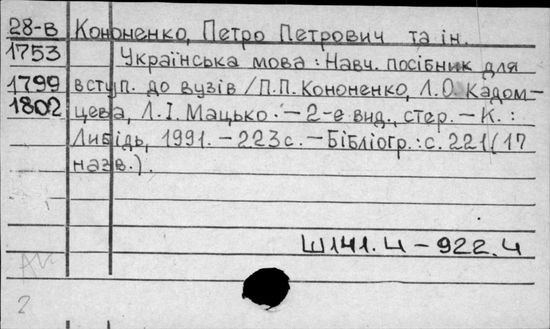 28-В Кононенко, Петро Петрович та ін.
1753 Українська мова : Навч. посібник для
1799 вступ. до вузів / П.П. Кононенко, Л.О. Кадом-
1802 цева, Л.І. Мацько. – 2-е вид., стер. – К. :
Либідь, 1991. – 223 с. – Бібліогр.: с. 221 (17
назв.).
Ш141.4 – 922.4
2